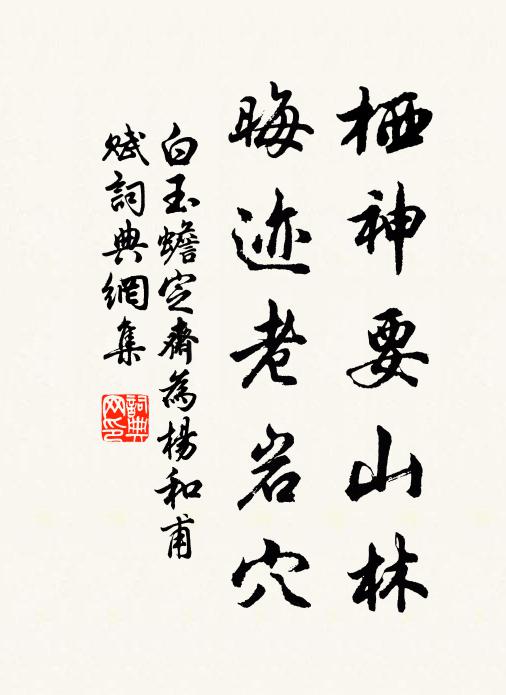 栖神要山林
晦迹老岩穴
白玉蟾定斋為楊和甫
赋詞典網集
詞典網印